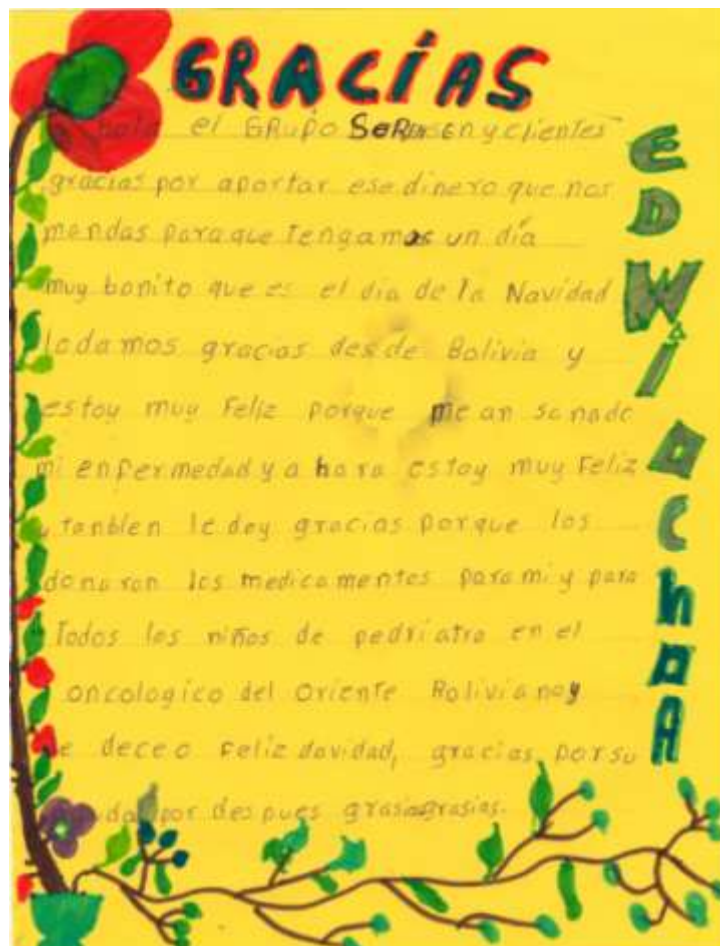 GRACÍAS
hola el GRUPO SORENSEN y clientes
gracias por aportar ese dinero que nos
mandas para que tengamos un día
muy bonito que es el dia de la Navidad
ledamos gracias desde Bolivia y
estoy muy Feliz porque me an sanado
mi enfermedad y ahora estoy muy Feliz
tanblen le doy gracias porque los
donaron los medicamentos para mi y para
Todos los niños de pedriatra en el
oncologico del Oriente Boliviano y
le deceo Feliz davidad, gracias por su
por des pues grasiagrasias.
EDWÍ ACHPA